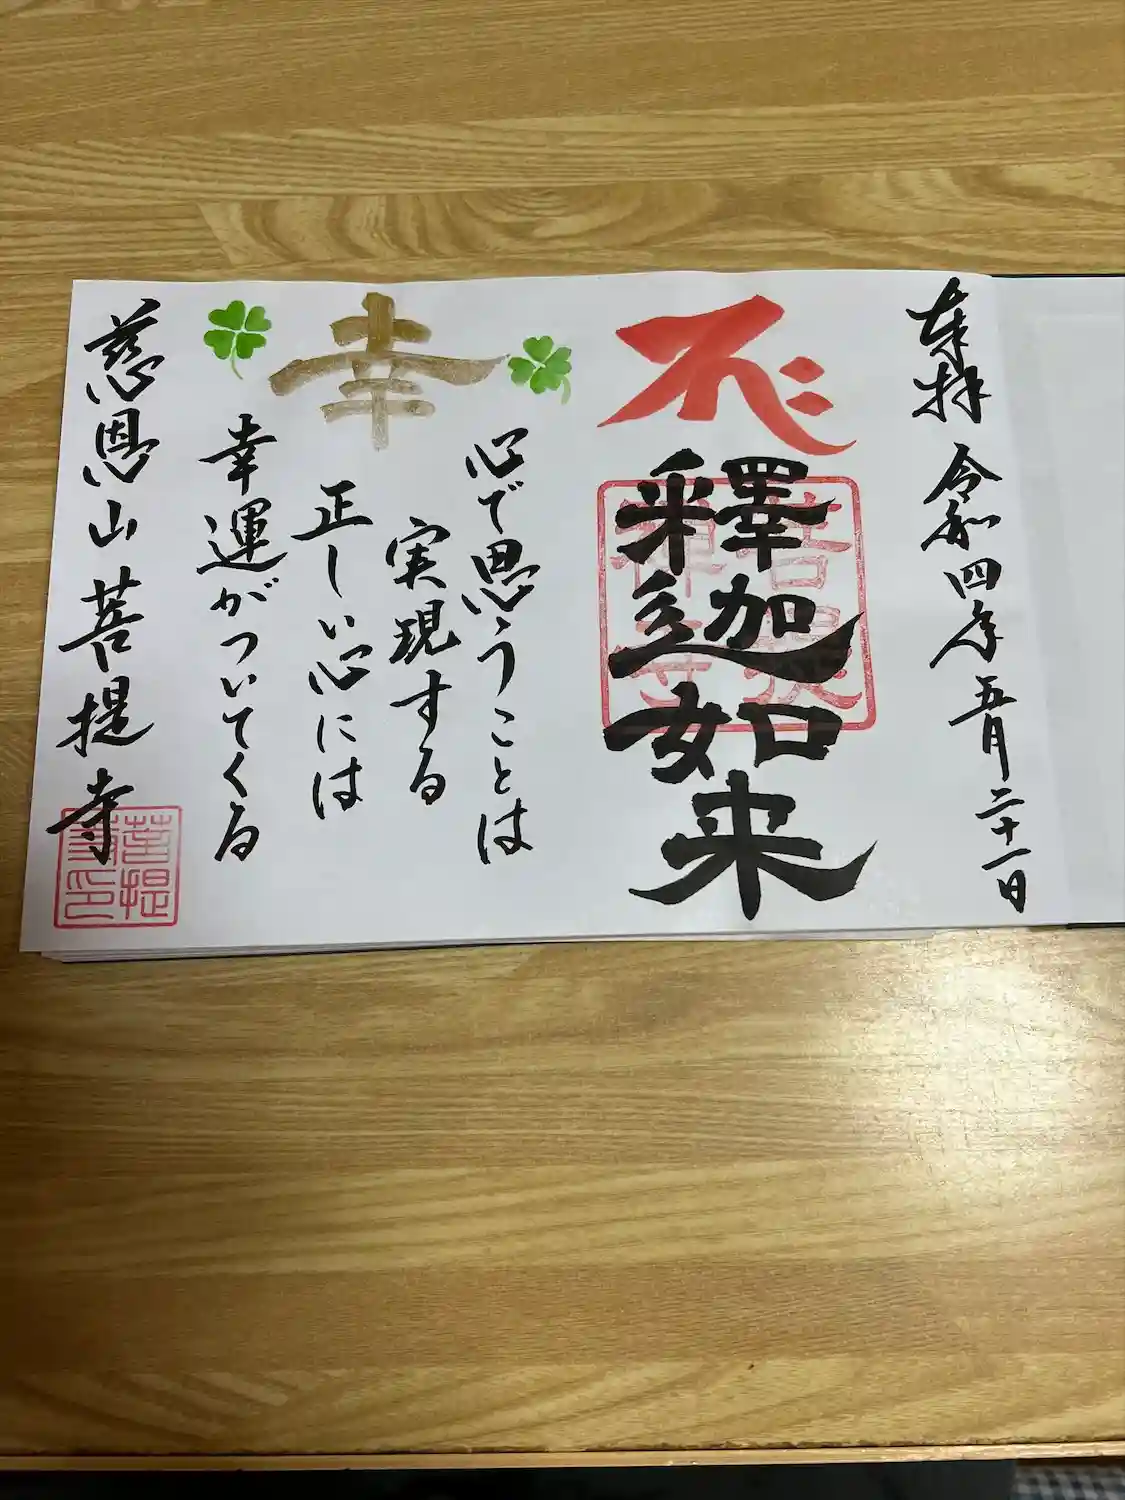 奉拝 令和四年五月二十一日
釋迦如来
菩提
禅寺
幸
心で思うことは
実現する
正しい心には
幸運がついてくる
慈恩山 菩提寺
菩提
寺印